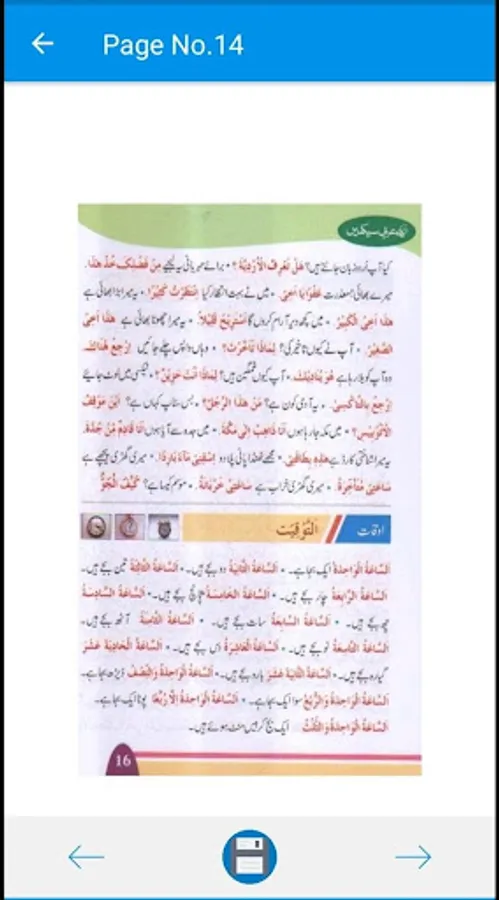 Page No.14
کیا آپ اُردو زبان جانتے ہیں؟ هَلْ تَعْرِفُ الْأُرْدِيَّةَ؟ • برائے مہربانی یہ لیجیے مِنْ فَضْلِكَ خُذْ هٰذَا.
میرے بھائی! معذرت عَفْوًا يَا أَخِيْ. • میں نے بہت انتظار کیا اِنْتَظَرْتُ كَثِيْرًا. • یہ میرا بڑا بھائی ہے
هٰذَا أَخِي الْكَبِيْرُ. • میں کچھ دیر آرام کروں گا أَسْتَرِيْحُ قَلِيْلًا. • یہ میرا چھوٹا بھائی ہے هٰذَا أَخِي
الصَّغِيْرُ. • آپ نے کیوں تاخیر کی؟ لِمَاذَا تَأَخَّرْتَ؟ • وہاں واپس چلے جائیں اِرْجِعْ هُنَاكَ.
وہ آپ کو بلا رہا ہے هُوَ يُنَادِيْكَ. • آپ کیوں غمگین ہیں؟ لِمَاذَا أَنْتَ حَزِيْنٌ؟ • ٹیکسی میں لوٹ جائیے
اِرْجِعْ بِالتَّاكْسِيْ. • یہ آدمی کون ہے؟ مَنْ هٰذَا الرَّجُلُ؟ • بس سٹاپ کہاں ہے؟ أَيْنَ مَوْقِفُ
الْأُتُوْبِيْسِ؟ • میں مکہ جا رہا ہوں أَنَا ذَاهِبٌ إِلٰى مَكَّةَ. • میں جدہ سے آیا ہوں أَنَا قَادِمٌ مِنْ جُدَّةَ.
یہ میرا شناختی کارڈ ہے هٰذِهِ بِطَاقَتِيْ. • مجھے ٹھنڈا پانی پلا دو اِسْقِنِيْ مَآءً بَارِدًا. • میری گھڑی پیچھے ہے
سَاعَتِيْ مُتَأَخِّرَةٌ. • میری گھڑی خراب ہے سَاعَتِيْ خَرْبَانَةٌ. • موسم کیسا ہے؟ كَيْفَ الْجَوُّ
اوقات التَّوْقِيْت
اَلسَّاعَةُ الْوَاحِدَةُ ایک بجا ہے۔ • اَلسَّاعَةُ الثَّانِيَةُ دو بجے ہیں۔ • اَلسَّاعَةُ الثَّالِثَةُ تین بجے ہیں۔
اَلسَّاعَةُ الرَّابِعَةُ چار بجے ہیں۔ • اَلسَّاعَةُ الْخَامِسَةُ پانچ بجے ہیں۔ • اَلسَّاعَةُ السَّادِسَةُ
چھ بجے ہیں۔ • اَلسَّاعَةُ السَّابِعَةُ سات بجے ہیں۔ • اَلسَّاعَةُ الثَّامِنَةُ آٹھ بجے ہیں۔
اَلسَّاعَةُ التَّاسِعَةُ نو بجے ہیں۔ • اَلسَّاعَةُ الْعَاشِرَةُ دس بجے ہیں۔ • اَلسَّاعَةُ الْحَادِيَةَ عَشَرَ
گیارہ بجے ہیں۔ • اَلسَّاعَةُ الثَّانِيَةَ عَشَرَ بارہ بجے ہیں۔ • اَلسَّاعَةُ الْوَاحِدَةُ وَالنِّصْفُ ڈیڑھ بجا ہے۔
اَلسَّاعَةُ الْوَاحِدَةُ وَالرُّبْعُ سوا ایک بجا ہے۔ • اَلسَّاعَةُ الْوَاحِدَةُ إِلَّا رُبْعًا پونا ایک بجا ہے۔
اَلسَّاعَةُ الْوَاحِدَةُ وَالثُّلُثُ ایک بج کر بیس منٹ ہوئے ہیں۔
16